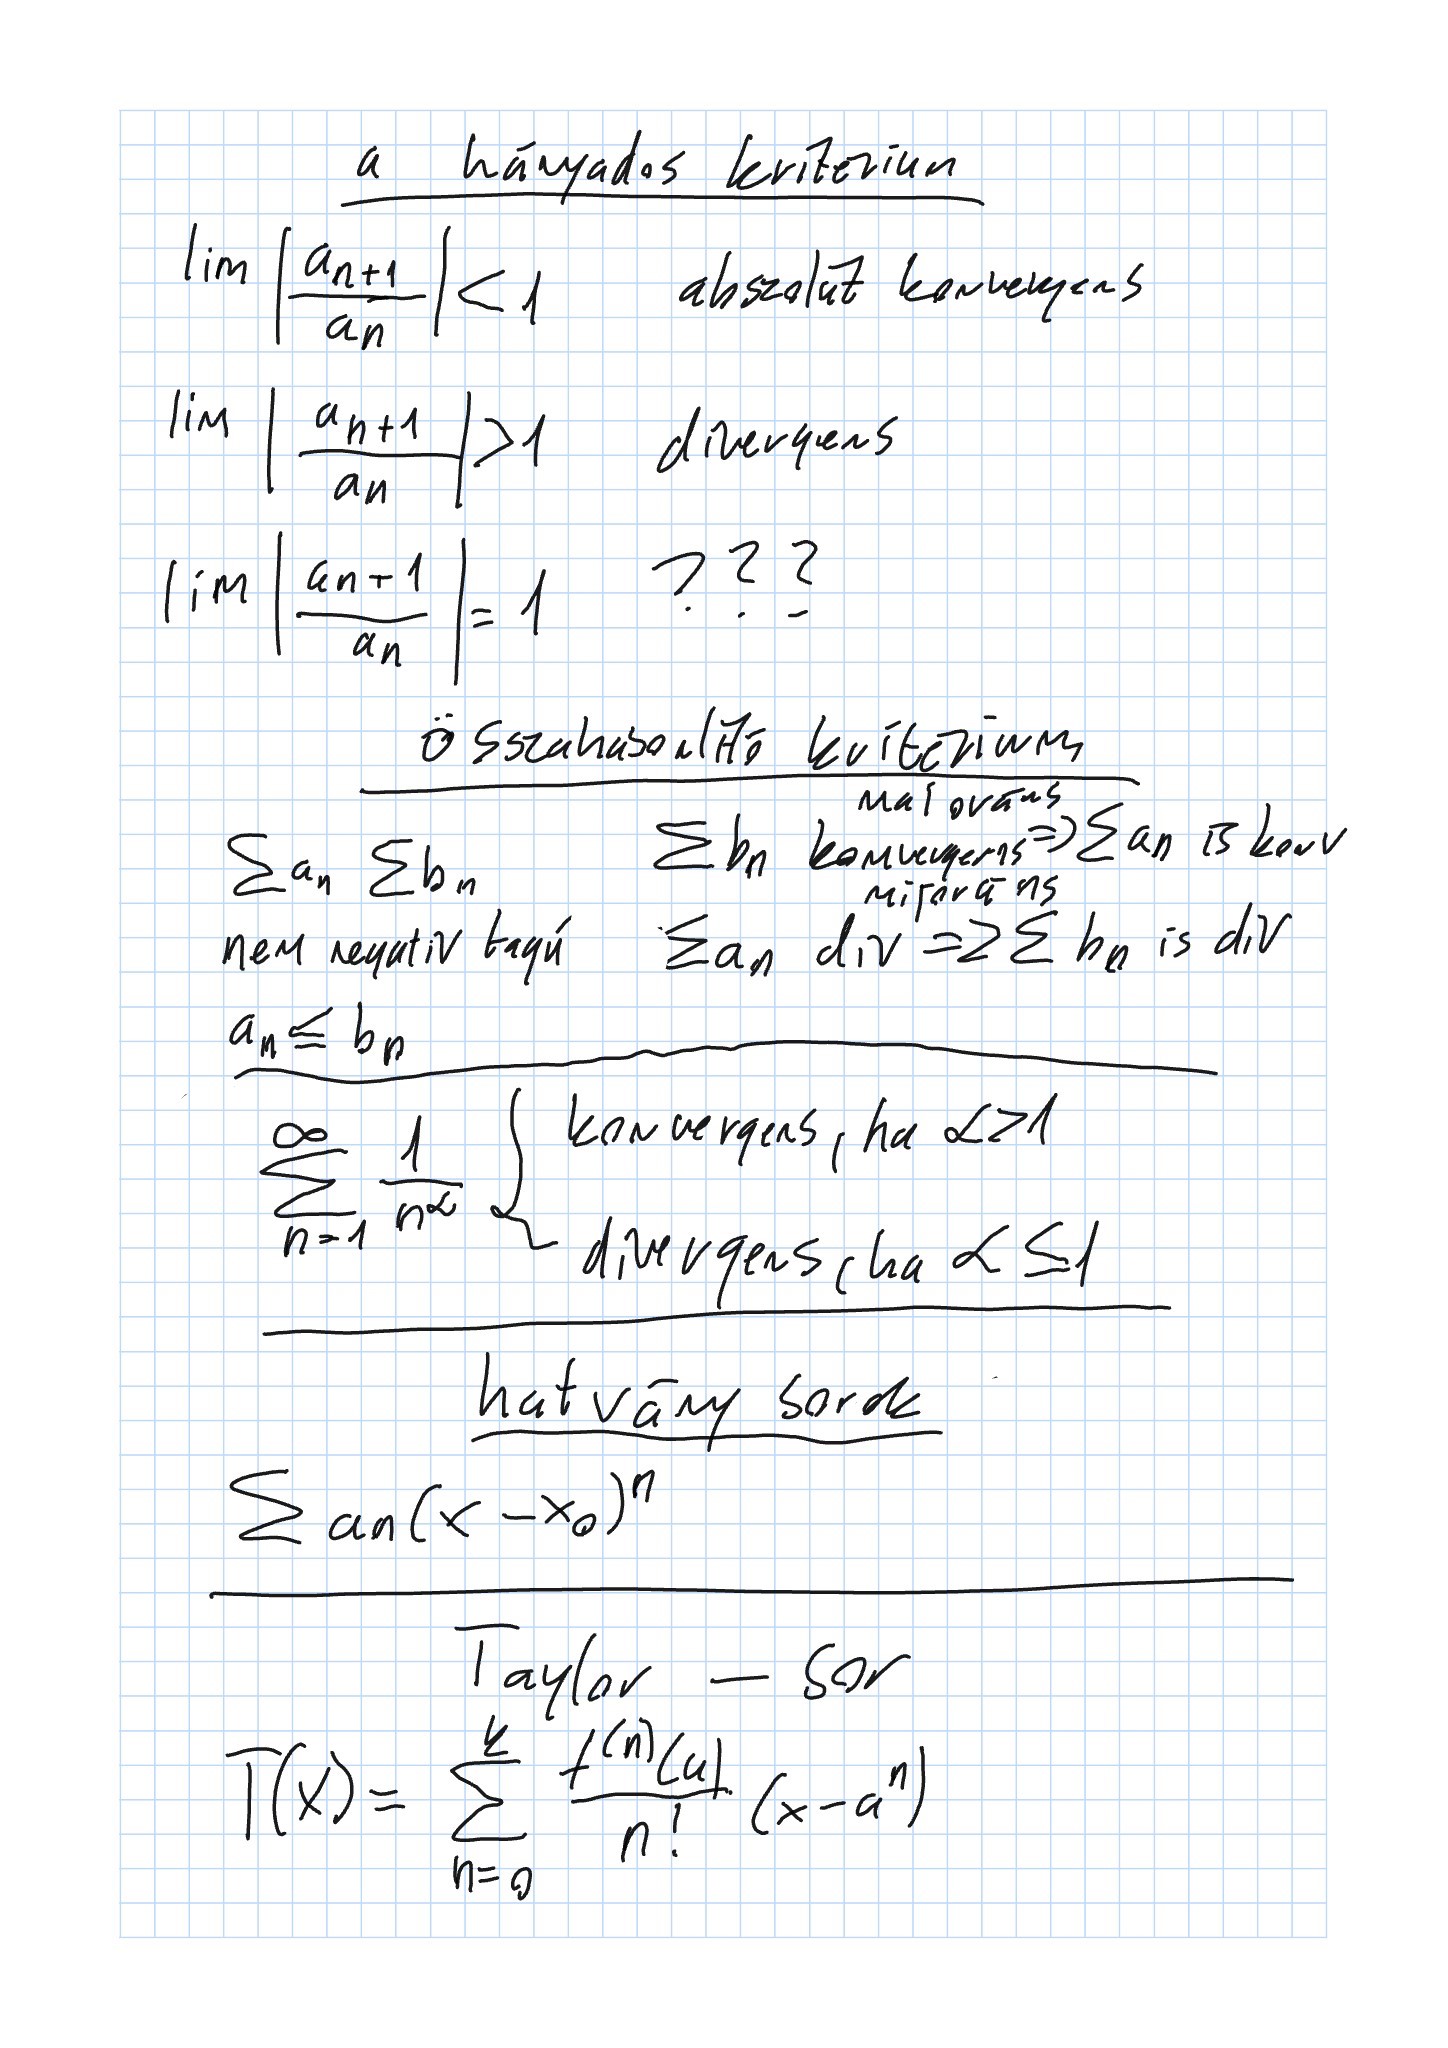 a hányados kritérium
lim |a_{n+1}/a_n| < 1 abszolút konvergens
lim |a_{n+1}/a_n| > 1 divergens
lim |a_{n+1}/a_n| = 1 ???
összahasonlító kritérium
majoráns
∑a_n ∑b_n ∑b_n konvergens => ∑a_n is konv
minoráns
nem negatív tagú ∑a_n div => ∑b_n is div
a_n ≤ b_n
∑_{n=1}^{∞} 1/n^α { konvergens, ha α>1
divergens, ha α ≤ 1
hatvány sorok
∑ a_n (x - x_0)^n
Taylor - sor
T(x) = ∑_{n=0}^{k} f^{(n)}(a)/n! (x-a^n)